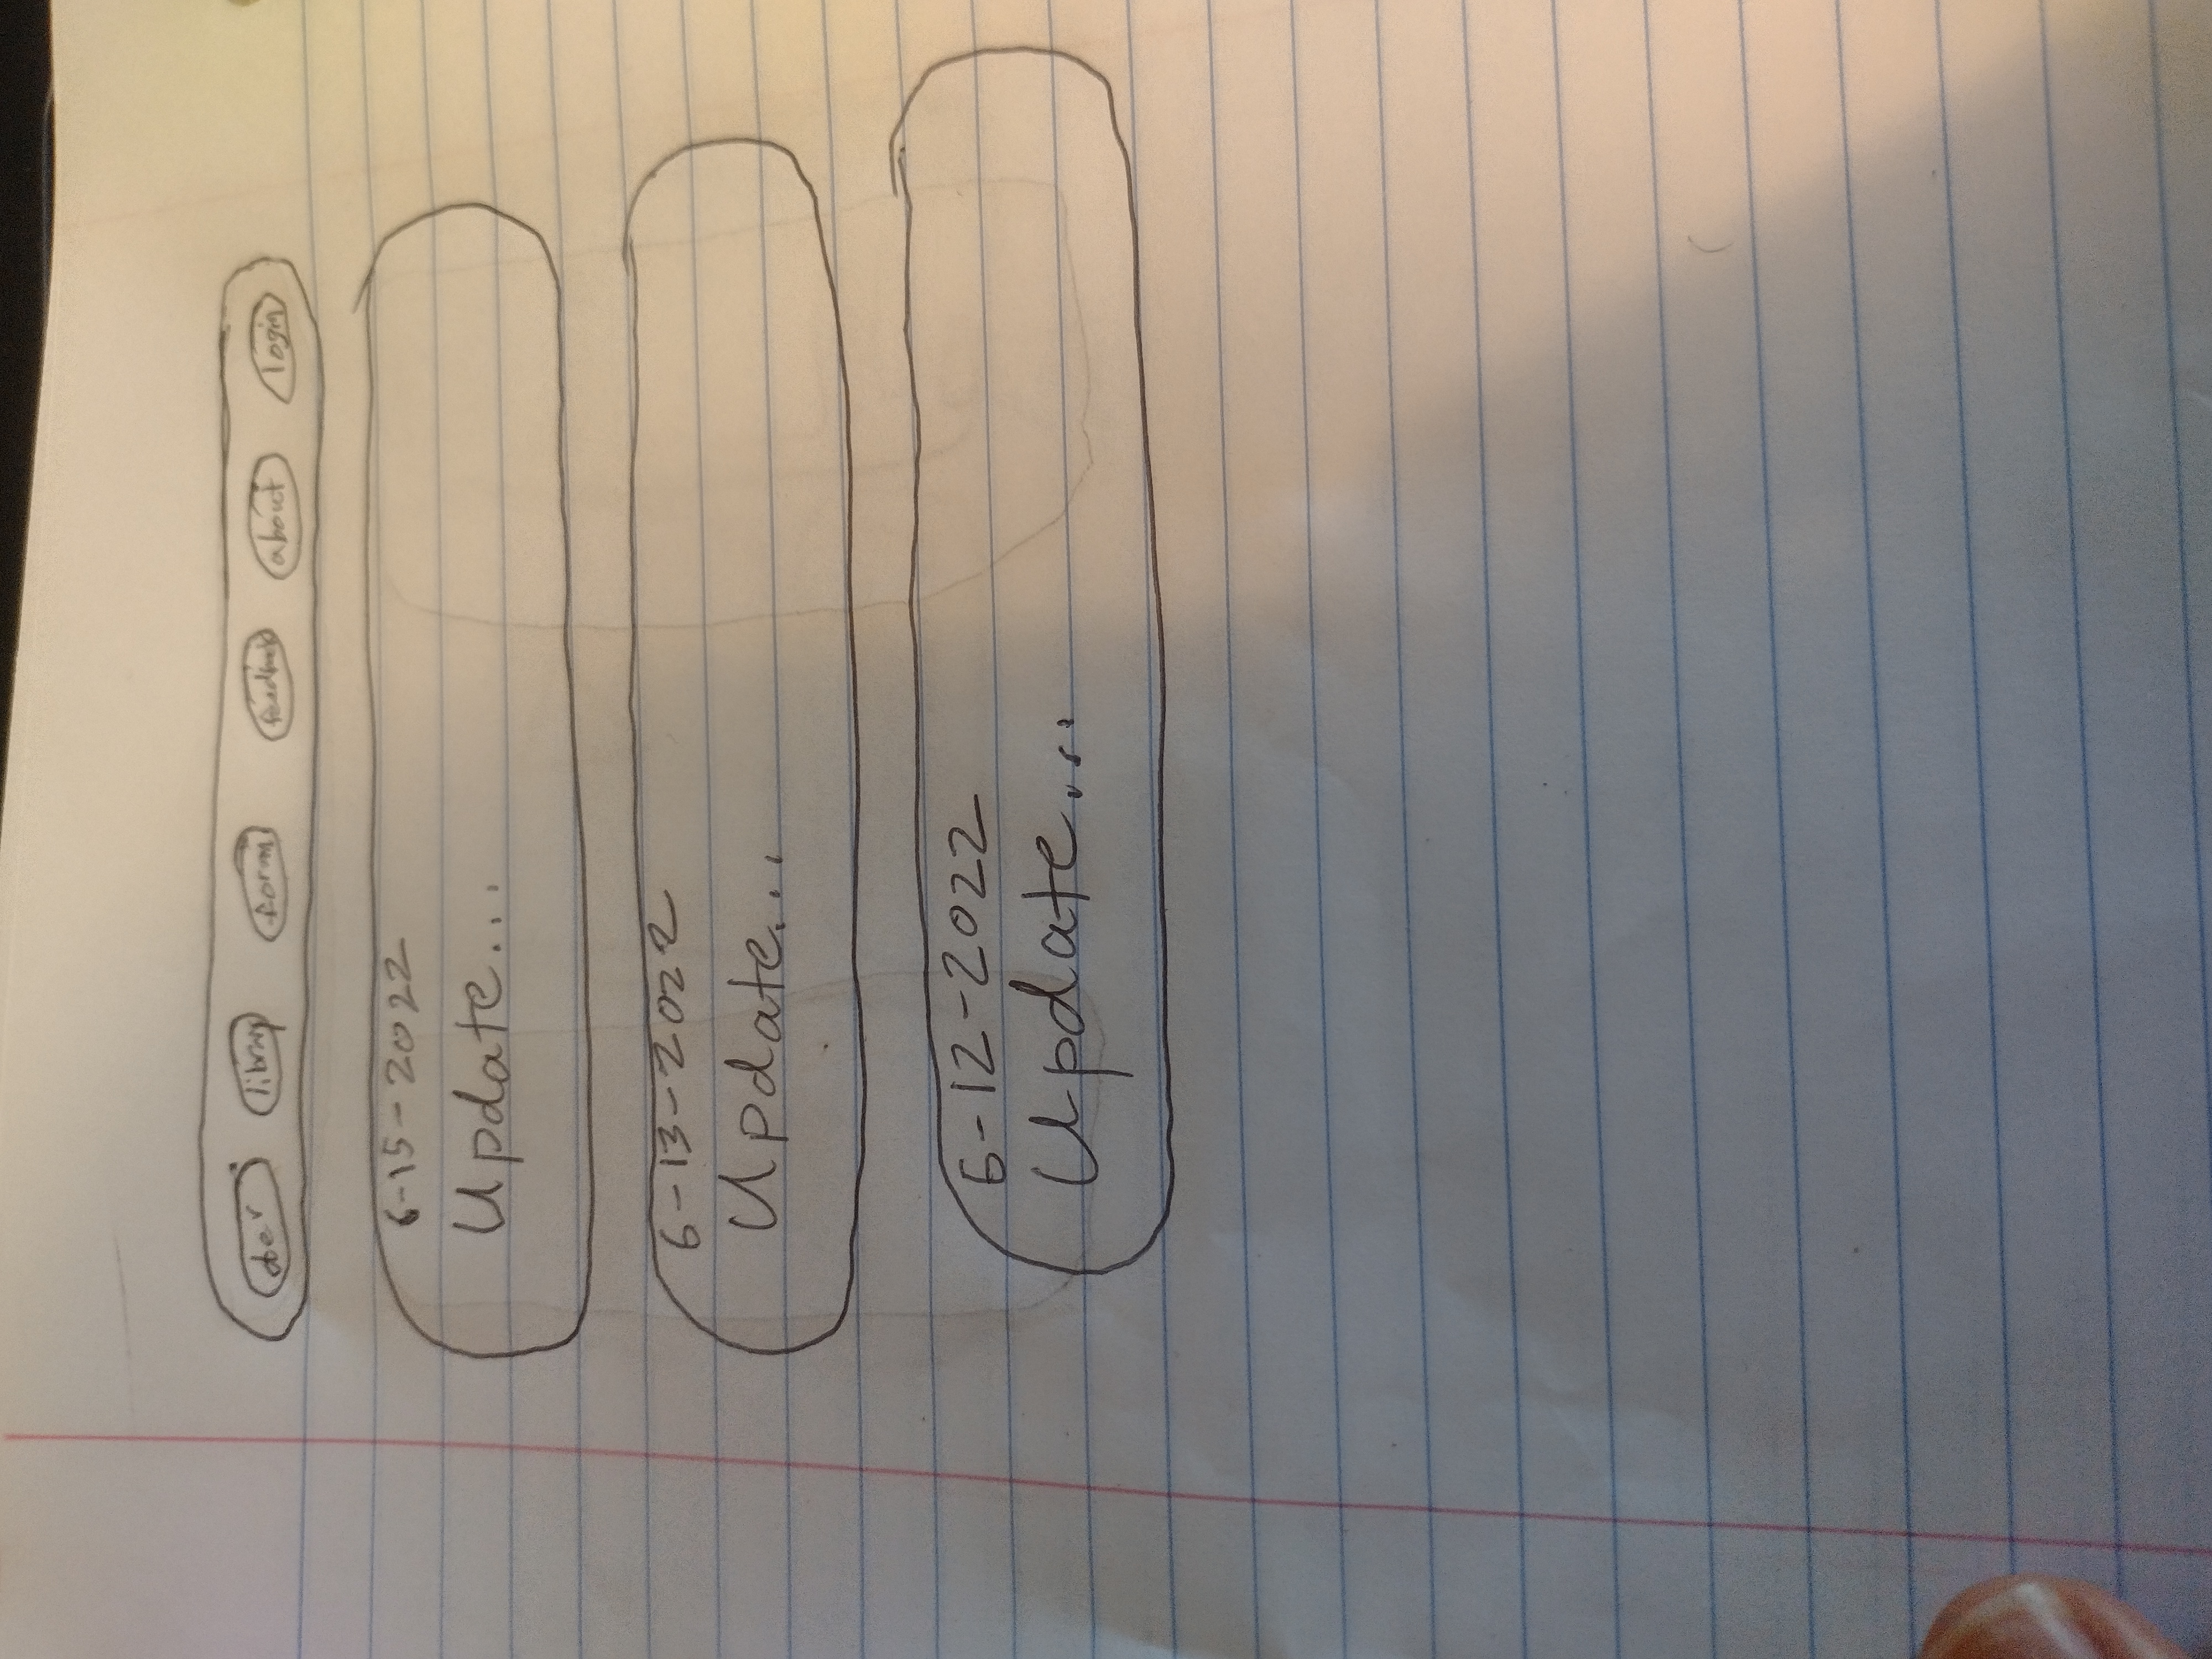 library form feedback about login
6-15-2022
Update...
6-13-2022
Update...
6-12-2022
Update...